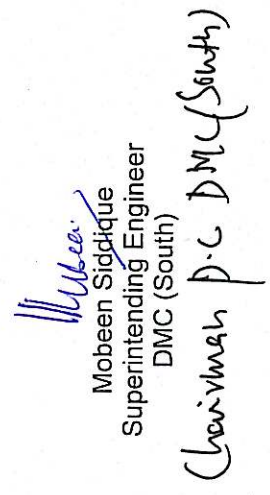 Mobeen
Mobeen Siddique
Superintending Engineer
DMC (South)
Chairman P.C DMC (South)